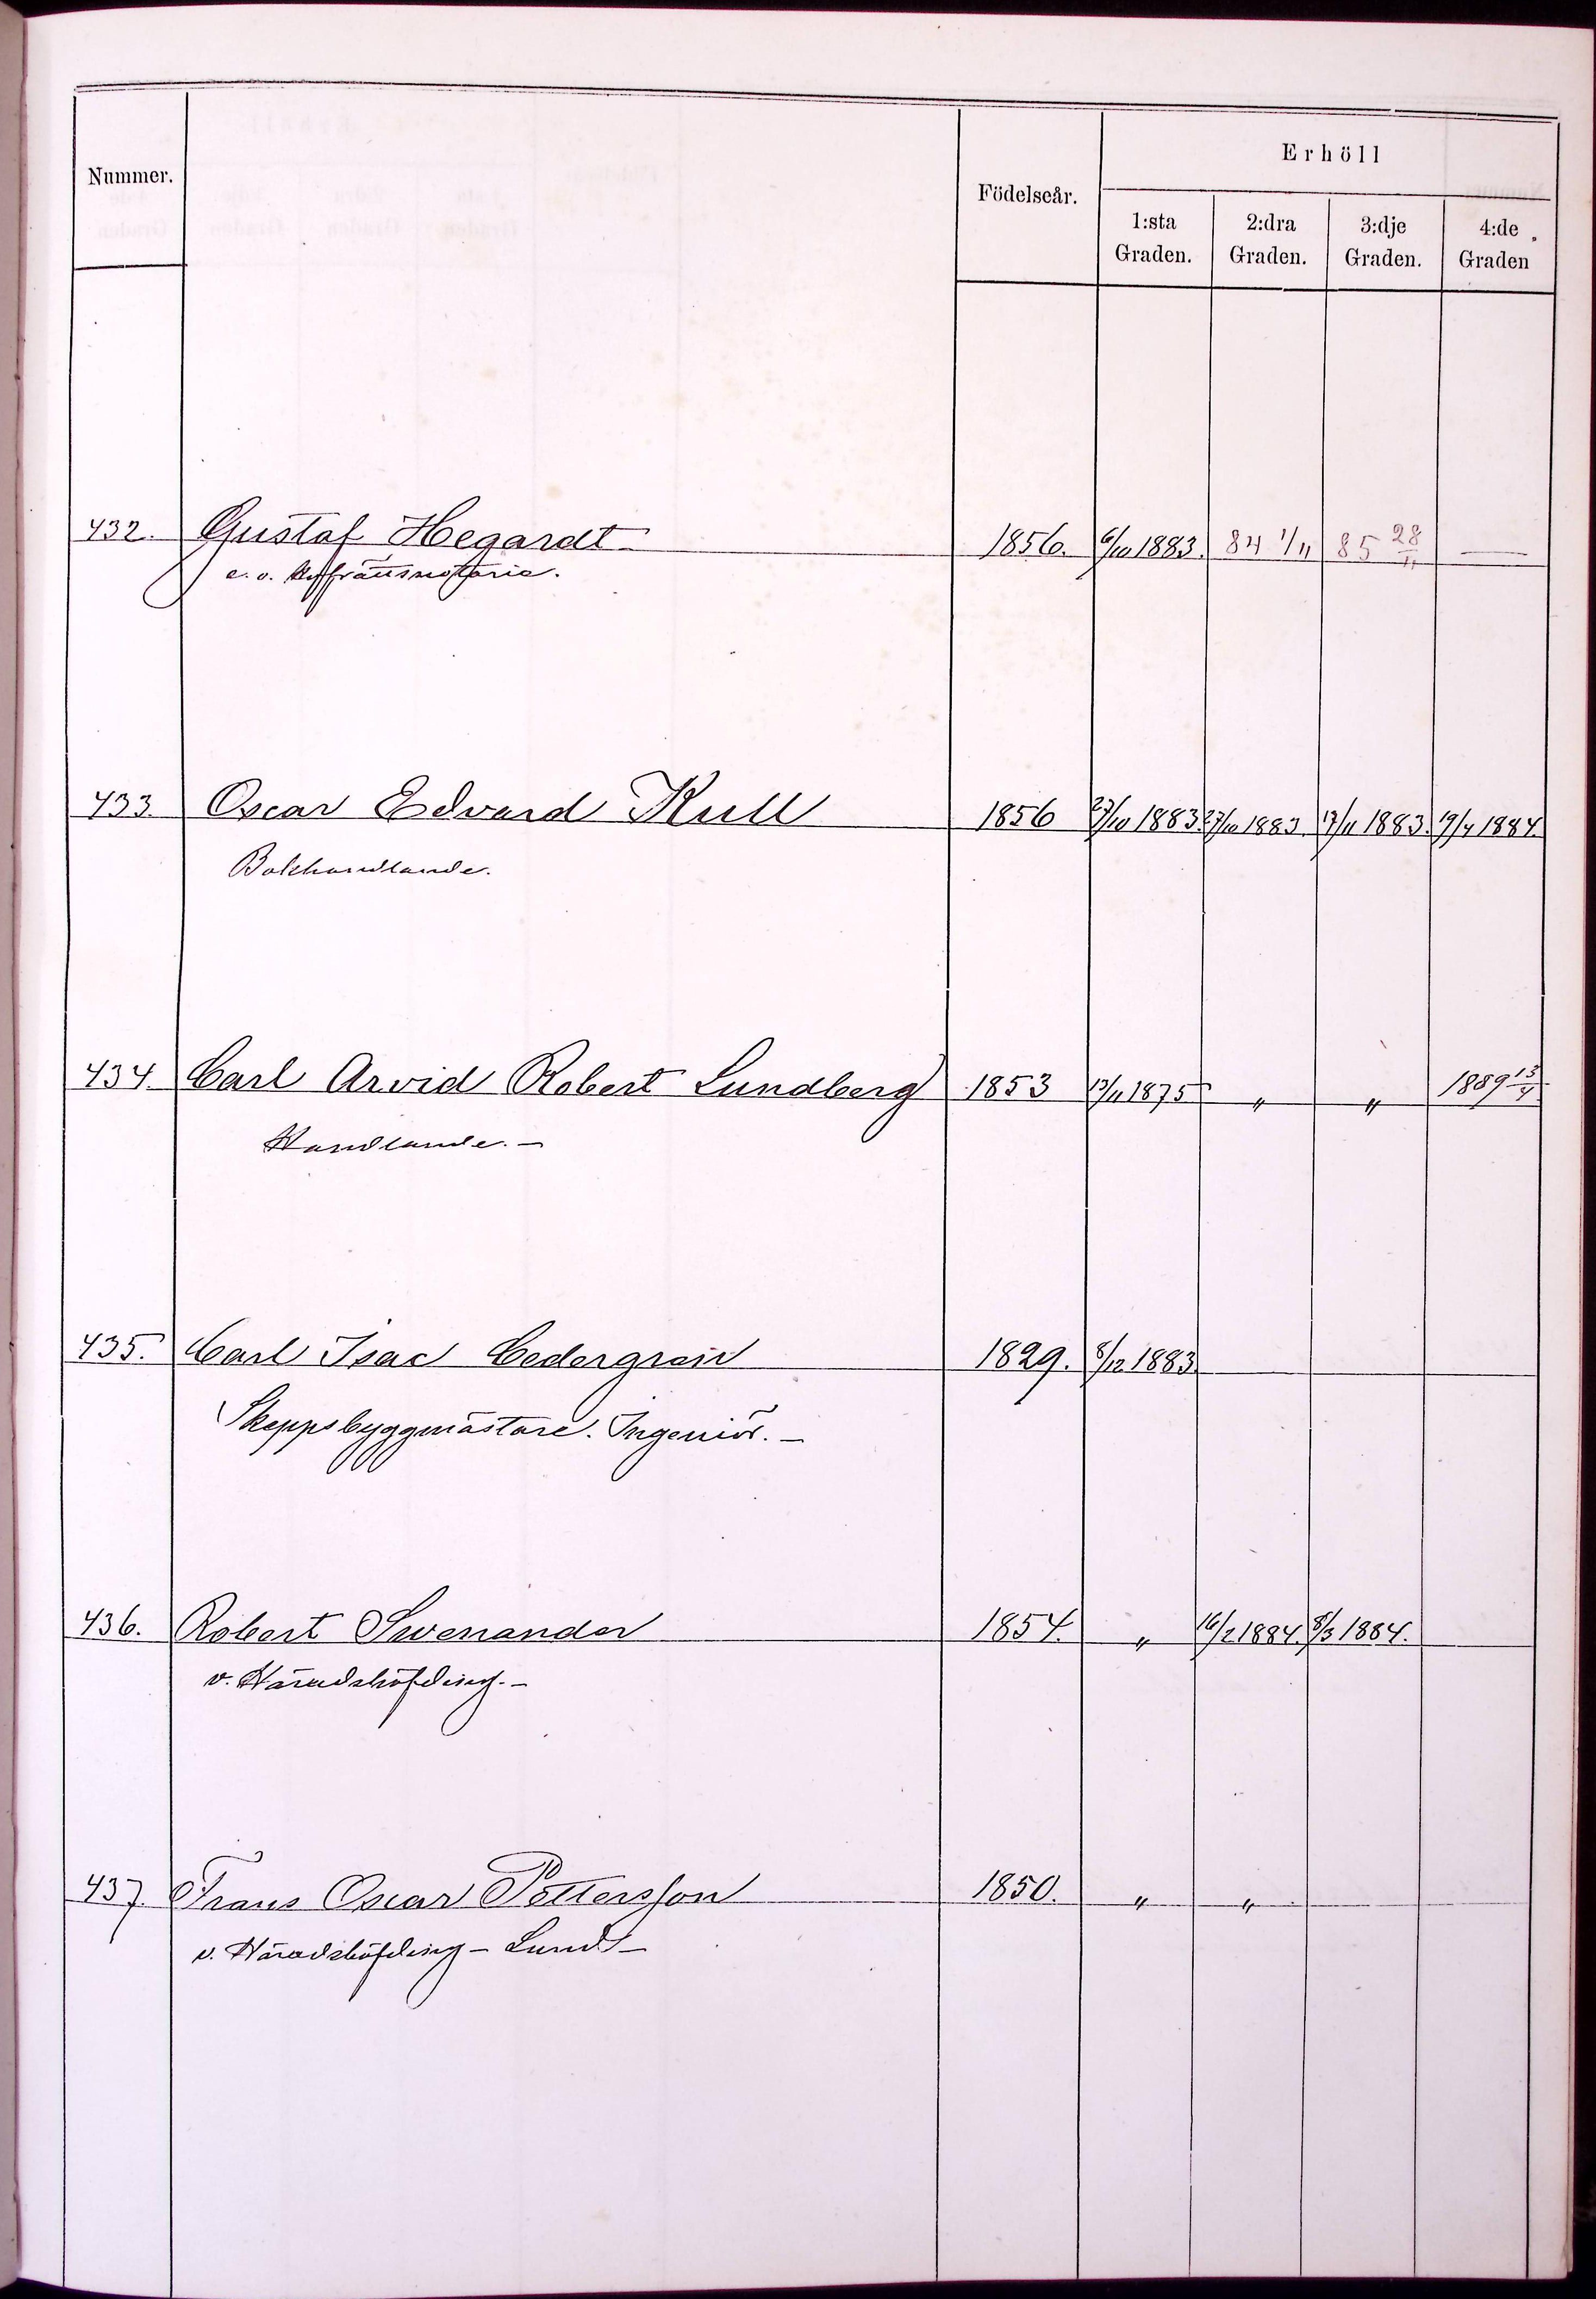 Nummer.
Födelseår.
Erhöll
1:sta Graden.
2:dra Graden.
3:dje Graden.
4:de Graden
432. Gustaf Hegardt 1856. 6/10 1883. 84 1/11 85 28/11 —
e. o. Hofrättsnotarie.
433. Oscar Edvard Kull 1856 27/10 1883. 27/10 1883. 17/11 1883. 19/4 1884.
Bokhandlande.
434. Carl Arvid Robert Lundberg 1853 13/11 1875 " " 1889 13/4
Handlande. —
435. Carl Isac Cedergren 1829. 8/12 1883.
Skeppsbyggmästare. Ingeniör. —
436. Robert Swenander 1854. " 16/2 1884. 8/3 1884.
v. Häradshöfding. —
437. Frans Oscar Pettersson 1850. " "
v. Häradshöfding — Lund —